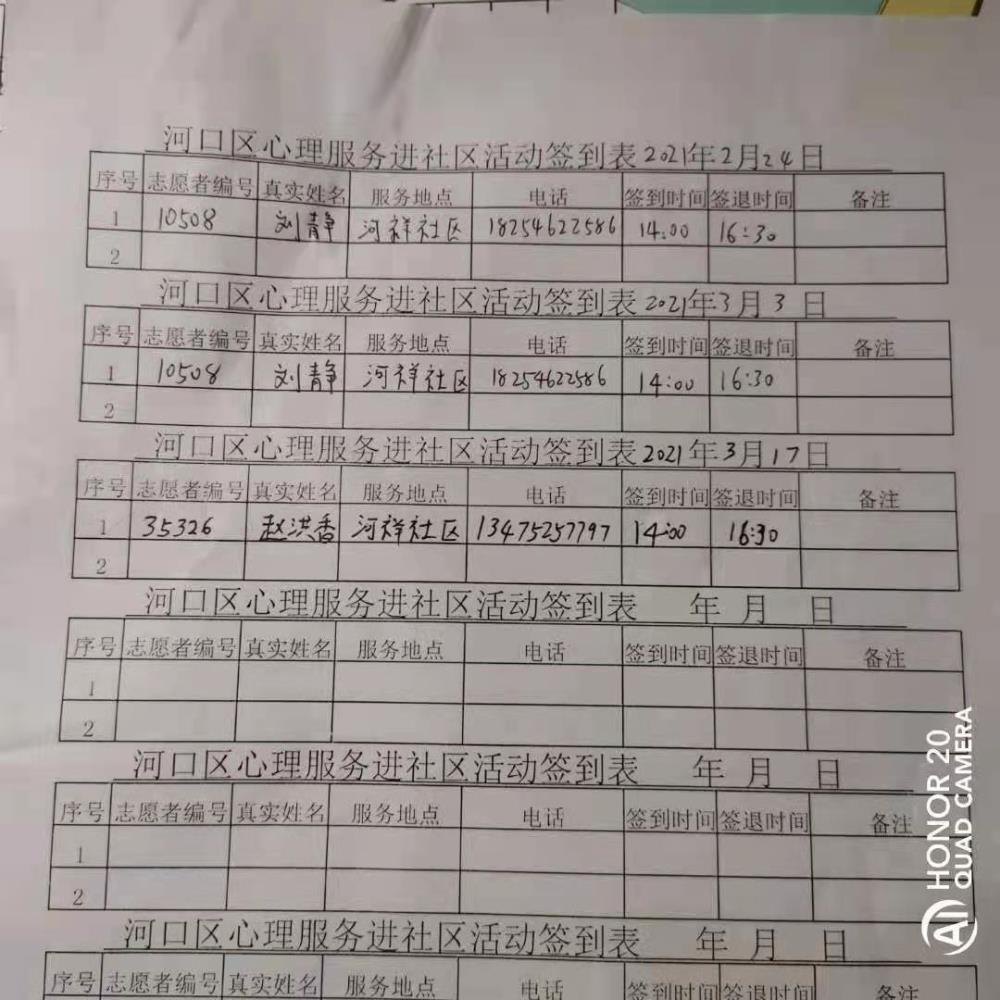 河口区心理服务进社区活动签到表2021年2月24日
序号 志愿者编号 真实姓名 服务地点 电话 签到时间 签退时间 备注
1 10508 刘静 河祥社区 18254622586 14:00 16:30
2
河口区心理服务进社区活动签到表2021年3月3日
序号 志愿者编号 真实姓名 服务地点 电话 签到时间 签退时间 备注
1 10508 刘静 河祥社区 18254622586 14:00 16:30
2
河口区心理服务进社区活动签到表2021年3月17日
序号 志愿者编号 真实姓名 服务地点 电话 签到时间 签退时间 备注
1 35326 赵洪香 河祥社区 13475257797 14:00 16:30
2
河口区心理服务进社区活动签到表 年 月 日
序号 志愿者编号 真实姓名 服务地点 电话 签到时间 签退时间 备注
1
2
河口区心理服务进社区活动签到表 年 月 日
序号 志愿者编号 真实姓名 服务地点 电话 签到时间 签退时间 备注
1
2
河口区心理服务进社区活动签到表 年 月 日
序号 志愿者编号 真实姓名 服务地点 电话 签到时间 签退时间 备注
HONOR 20
QUAD CAMERA
AI